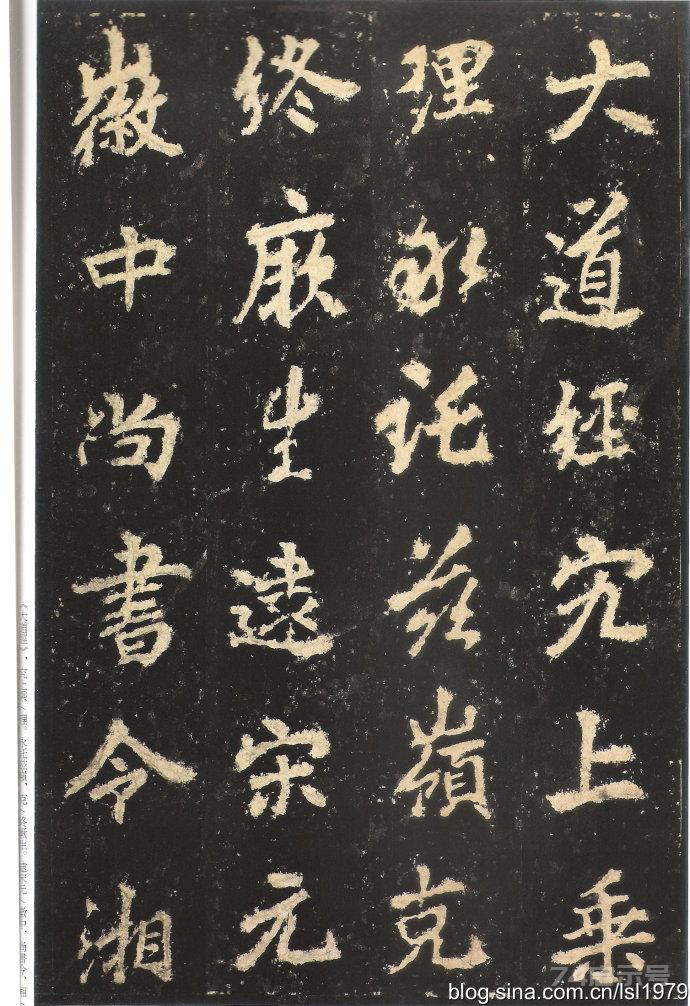 大道經究上乘
理永託茲嶺克
終厥生逮宋元
徽中尚書令湘
blog.sina.com.cn/lsl1979